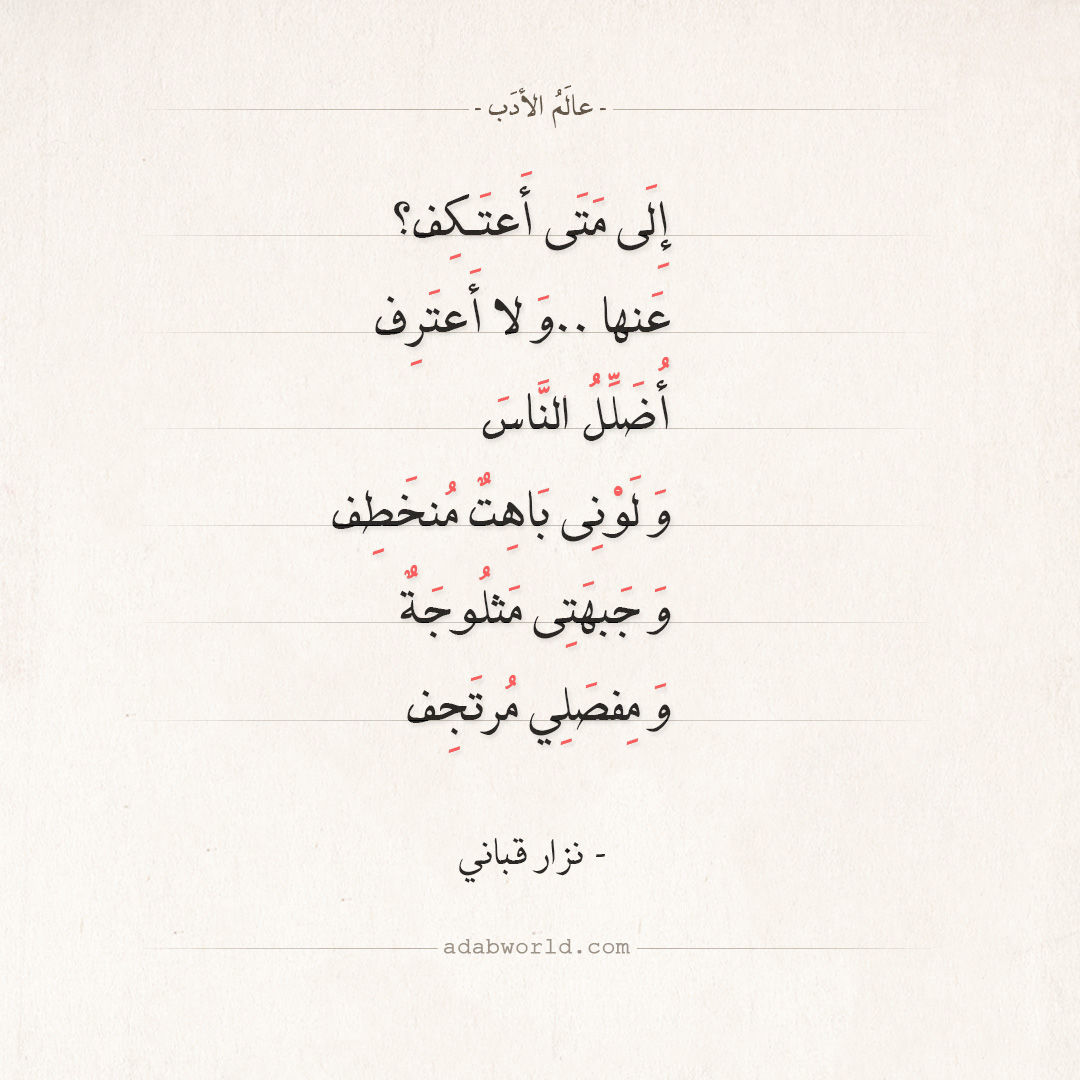 - عالَمُ الأدَب -
إِلَى مَتَى أَعتَـكِف؟
عَنها ..وَ لا أَعتَرِف
أُضَلِّلُ النَّاسَ
وَ لَوْنِى بَاهِتٌ مُنخَطِف
وَ جَبهَتِى مَثلُوجَةٌ
وَ مِفصَلِي مُرتَجِف
- نزار قباني
adabworld.com